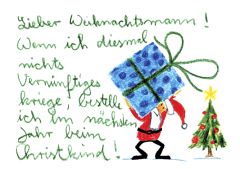 Lieber Weihnachtsmann!
Wenn ich diesmal
nichts
Vernünftiges
kriege, bestelle
ich im nächsten
Jahr beim
Christkind!